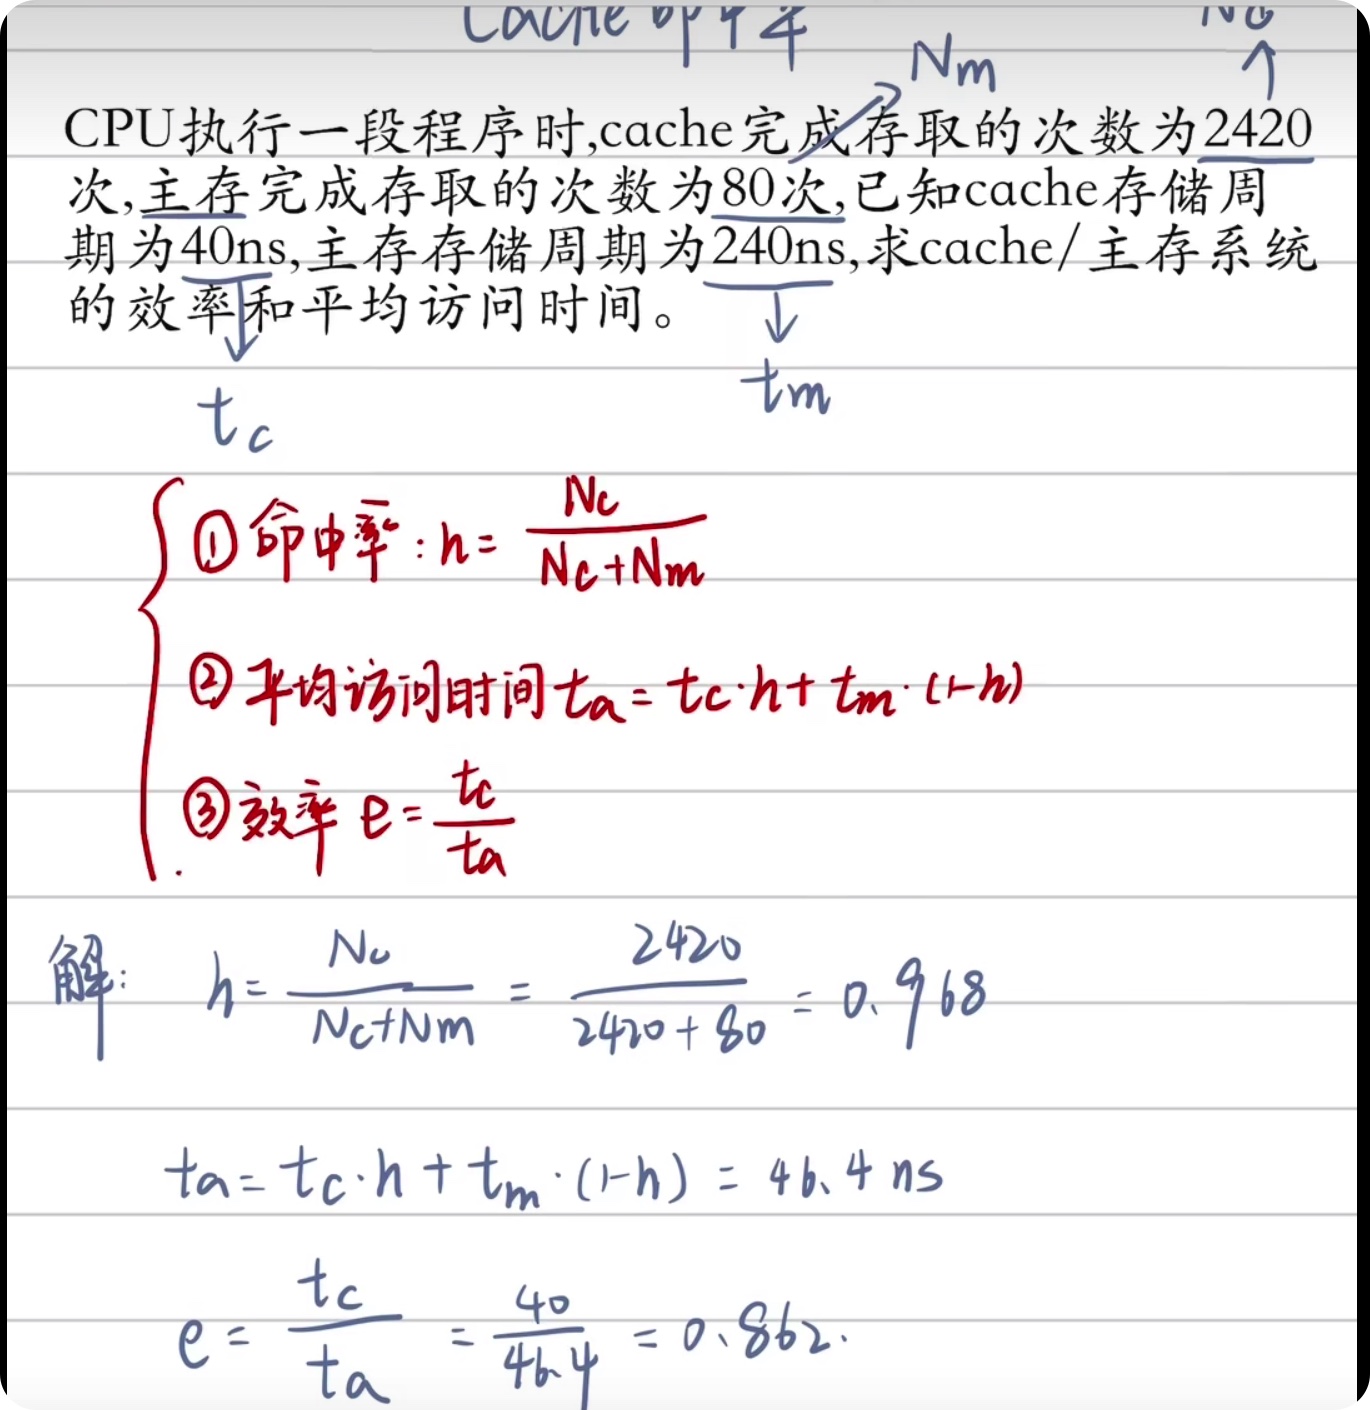 Cache 命中率
Nc
Nm
CPU执行一段程序时,cache完成存取的次数为2420
次,主存完成存取的次数为80次,已知cache存储周
期为40ns,主存存储周期为240ns,求cache/主存系统
的效率和平均访问时间。
tc
tm
①命中率:h=Nc/(Nc+Nm)
②平均访问时间ta=tc·h+tm·(1-h)
③效率 e=tc/ta
解: h=Nc/(Nc+Nm)=2420/(2420+80)=0.968
ta=tc·h+tm·(1-h)=46.4ns
e=tc/ta=40/46.4=0.862.